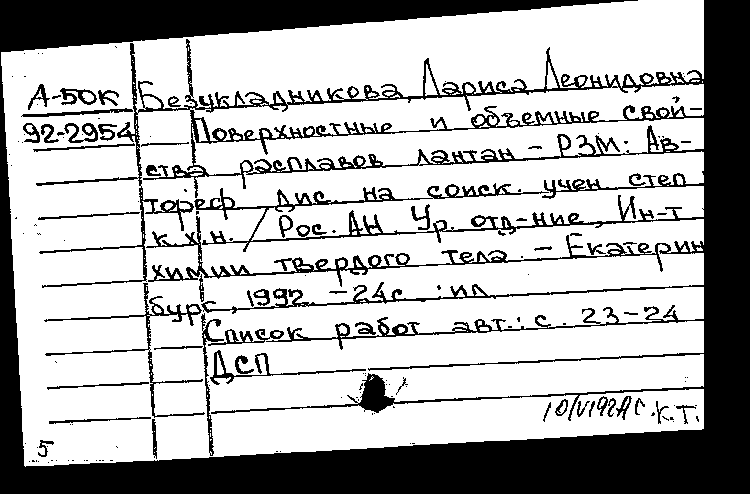 А-50К Безукладникова, Лариса Леонидовна
92-2954 Поверхностные и объемные свой-
ства расплавов лантан - РЗМ: Ав-
тореф. дис. на соиск. учен степ
к.х.н. / Рос. АН. Ур. отд-ние, Ин-т
химии твердого тела. - Екатерин
бург, 1992. - 24с. : ил.
Список работ авт.: с. 23-24
ДСП
К.Т.
5